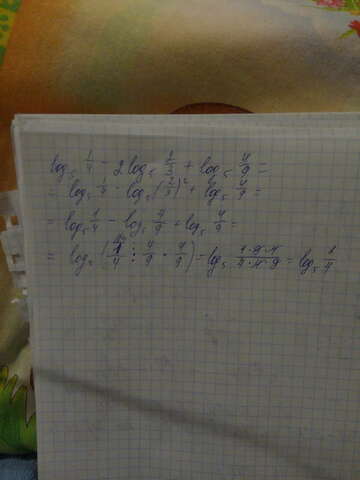 log₅ 1/4 - 2log₅ 2/3 + log₅ 4/9 =
= log₅ 1/4 - log₅ (2/3)² + log₅ 4/9 =
= log₅ 1/4 - log₅ 4/9 + log₅ 4/9 =
= log₅ (1/4 : 4/9 · 4/9) = log₅ 1·9·4/4·4·9 = log₅ 1/4